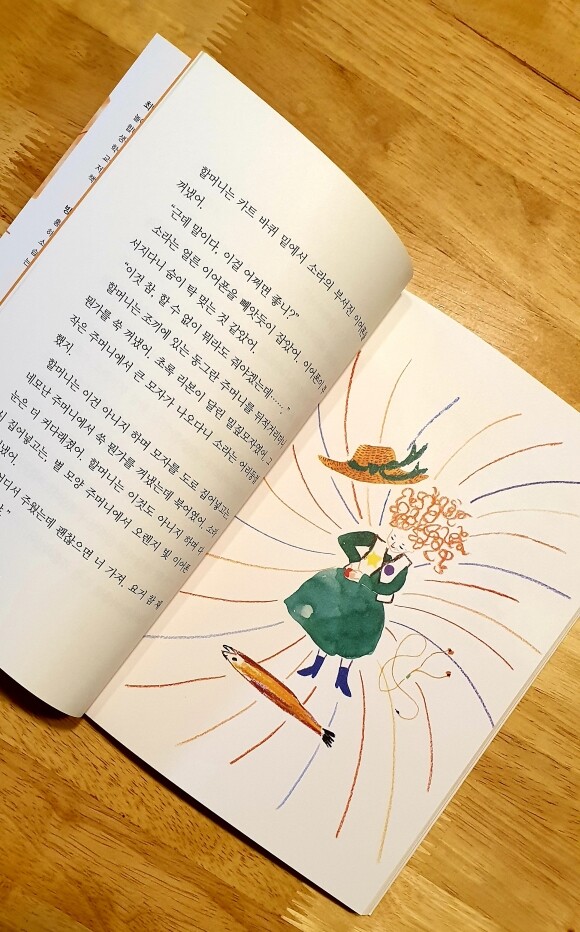 할머니는 카트 바퀴 밑에서 소라의 부서진 이어폰을
꺼냈어.
"근데 말이다. 이걸 어쩌면 좋니?"
소라는 얼른 이어폰을 빼앗듯이 잡았어. 이어폰이 부
서지다니 숨이 탁 멎는 것 같았어.
"이것 참, 할 수 없이 뭐라도 줘야겠는데……."
할머니는 조끼에 있는 동그란 주머니를 뒤적거리더니
뭔가를 쑥 꺼냈어. 초록 리본이 달린 밀짚모자였어. 그
작은 주머니에서 큰 모자가 나오다니 소라는 어리둥절
했지.
할머니는 이건 아니지 하며 모자를 도로 집어넣고는
네모난 주머니에서 쑥 뭔가를 꺼냈는데 북어였어. 소라
눈은 더 커다래졌어. 할머니는 이것도 아니지 하며 다
시 집어넣고는, 별 모양 주머니에서 오렌지 빛 이어폰
꺼냈어.
어디서 주웠는데 괜찮으면 너 가져. 요거 참